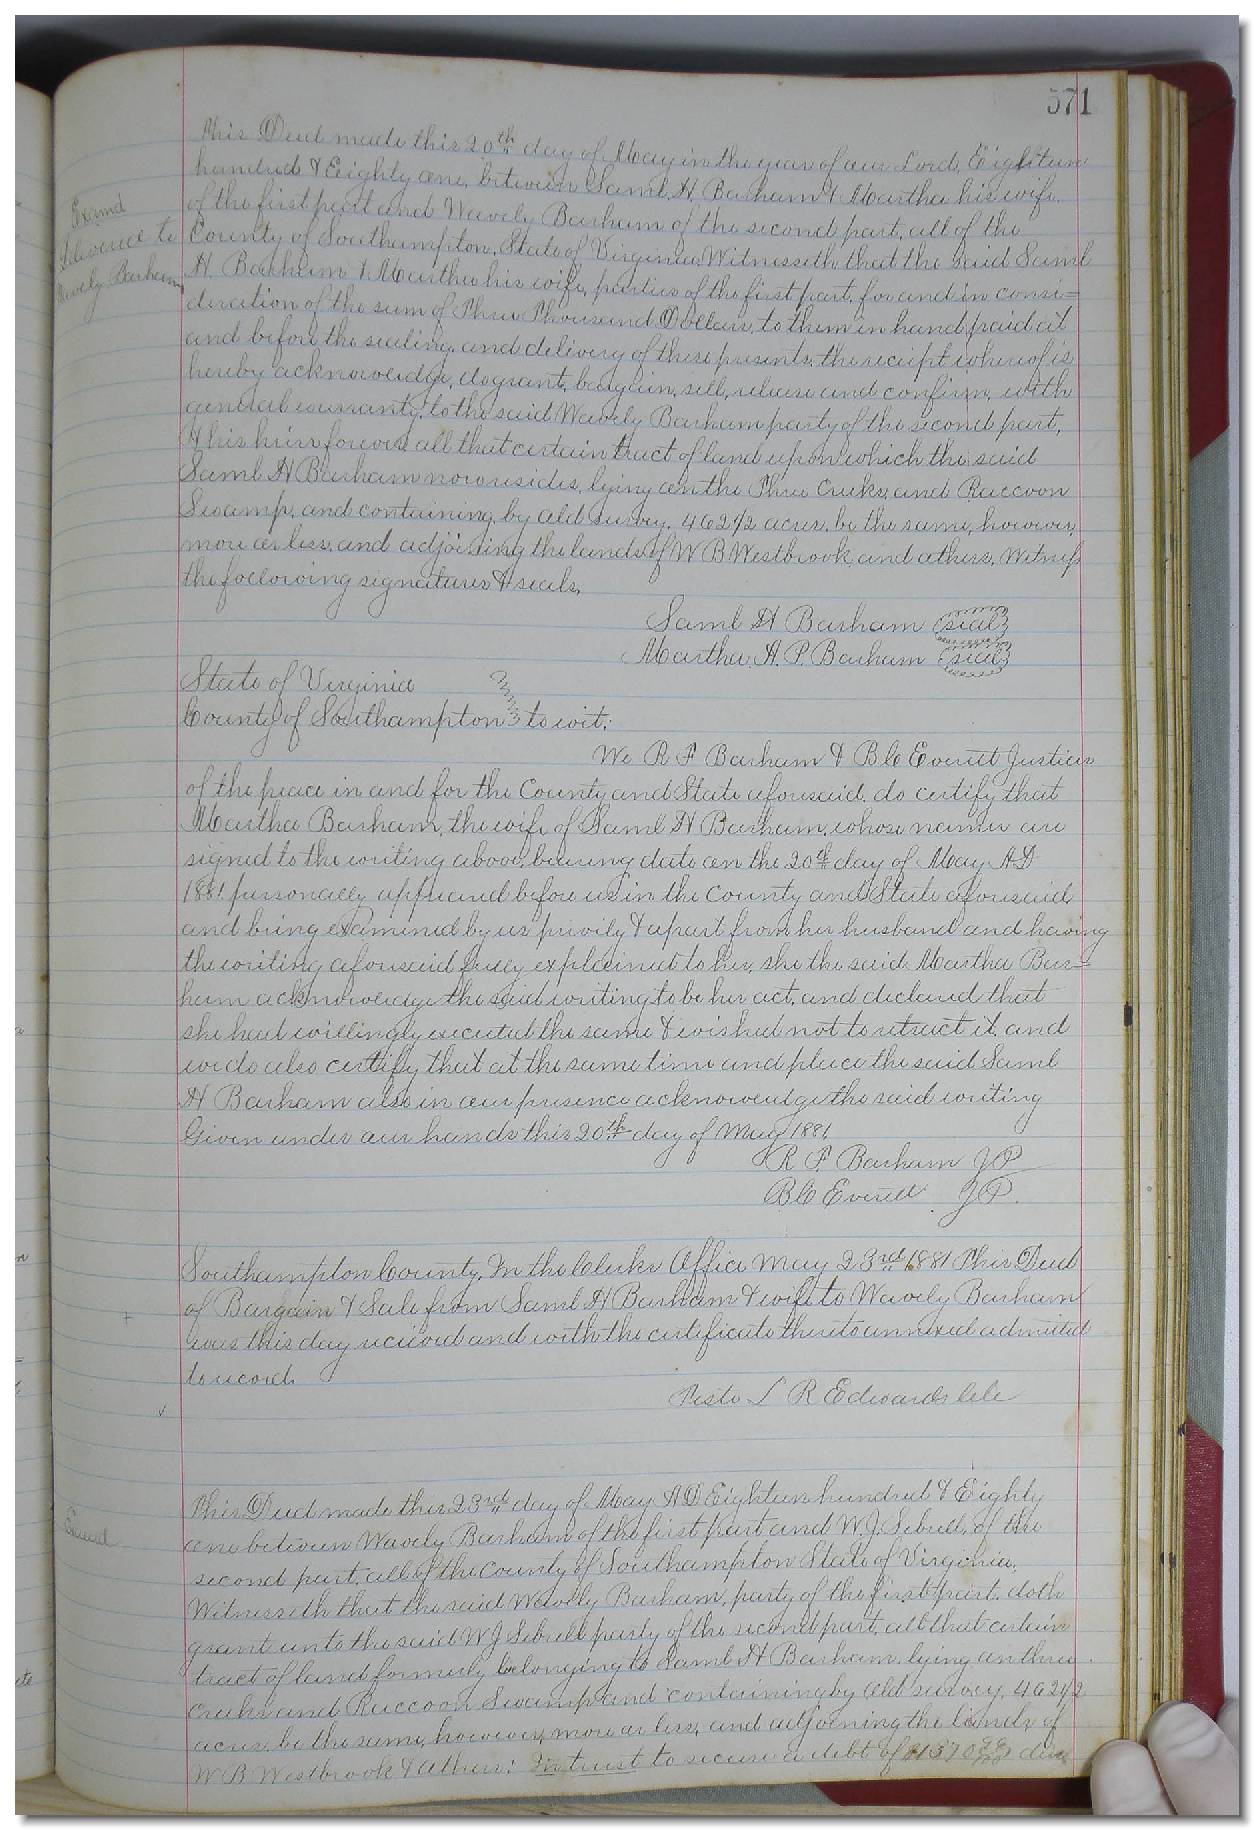 571
This Deed made this 20th day of May in the year of our Lord, Eighteen
hundred & Eighty one, between Saml. H. Barham & Martha his wife.
of the first part and Wavely Barham of the second part, all of the
Examd
Delivered to
Wavely Barham
County of Southampton, State of Virginia Witnesseth that the said Saml
H Barham & Martha his wife, parties of the first part, for and in consi=
deration of the sum of Three Thousand Dollars, to them in hand paid at
and before the sealing and delivery of these presents, the receipt whereof is
hereby acknowledge, do grant, bargain, sell, release and confirm, with
general warranty, to the said Wavely Barham party of the second part,
& his heirs forever all that certain tract of land upon which the said
Saml H Barham now resides, lying on the Three Creeks, and Raccoon
Swamp, and containing, by old survey, 462 1/2 acres, be the same, however,
more or less, and adjoining the lands of W B Westbrook, and others, Witness
the following signatures & seals,
Saml H Barham seal
Martha A. P. Barham seal
State of Virginia
County of Southampton to wit:
We R F Barham & B C Everett Justices
of the peace in and for the County and State aforesaid, do certify that
Martha Barham, the wife of Saml H Barham, whose names are
signed to the writing above, bearing date on the 20th day of May AD
1881 personally appeared before us in the County and State aforesaid
and being examined by us privily & apart from her husband and having
the writing aforesaid fully explained to her, she the said Martha Bar=
ham acknowledge the said writing to be her act, and declared that
she had willingly executed the same & wished not to retract it, and
we do also certify that at the same time and place the said Saml
H Barham also in our presence acknowledge the said writing
Given under our hands this 20th day of May 1881.
R F Barham JP
B C Everett JP.
Southampton County, In the Clerks Office May 23rd 1881 This Deed
of Bargain & Sale from Saml H Barham & wife to Wavely Barham
was this day received and with the certificate thereto annexed admitted
to record.
Teste L R Edwards Clk
This Deed made this 23rd day of May AD Eighteen hundred & Eighty
one between Wavely Barham of the first part and W. J. Sebrell, of the
second part, all of the County of Southampton State of Virginia,
Witnesseth that the said Wavely Barham, party of the first part, doth
grant unto the said W J Sebrell party of the second part, all that certain
tract of land formerly belonging to Saml H Barham lying on three
creeks and Raccoon Swamp and containing by old survey, 462 1/2
acres, be the same, however, more or less, and adjoining the lands of
W B Westbrook & others; In trust to secure a debt of